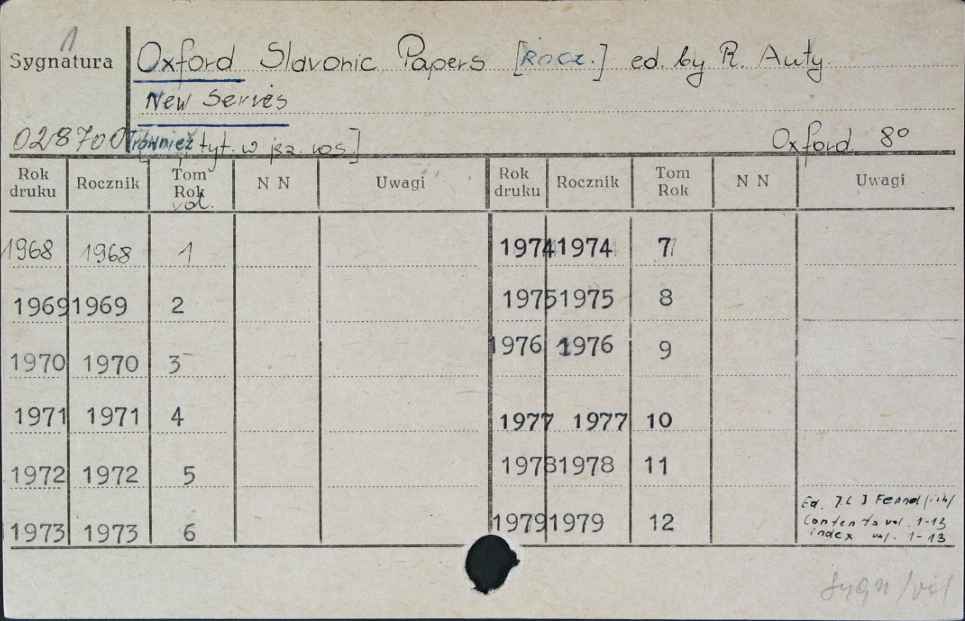 1
Sygnatura
Oxford Slavonic Papers [Rocz.] ed. by R. Auty
New Series
028700
[również tyt. w jęz. ros.] Oxford 8°
Rok druku Rocznik Tom Rok vol. N N Uwagi Rok druku Rocznik Tom Rok N N Uwagi
1968 1968 1 1974 1974 7
1969 1969 2 1975 1975 8
1970 1970 3 1976 1976 9
1971 1971 4 1977 1977 10
1972 1972 5 1978 1978 11
1973 1973 6 1979 1979 12
Ed. J.L I Fennel
Contents vol. 1-13
index vol. 1-13
Sygn